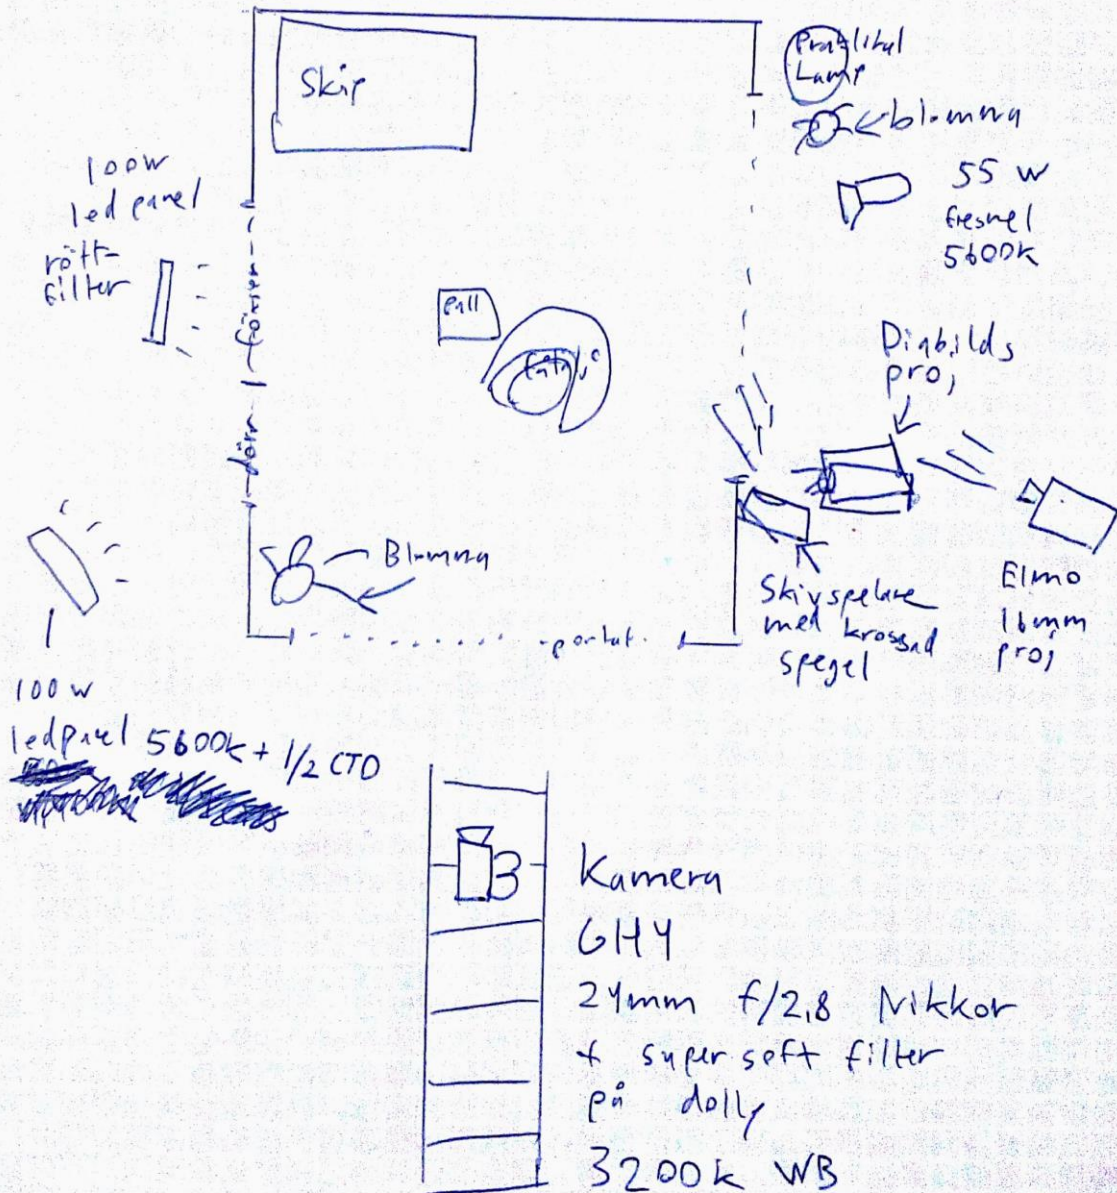 Skåp
Praktikal
Lamp
blomma
100w
led panel
rött-
filter
55 w
fresnel
5600k
fönster
pall
Fåtölj
Diabilds
proj
dörr
Blomma
Skivspelare
med krossad
spegel
Elmo
16mm
proj
portal
100w
ledpanel 5600k + 1/2 CTO
Kamera
GH4
24mm f/2,8 Nikkor
+ super soft filter
på dolly
3200k WB